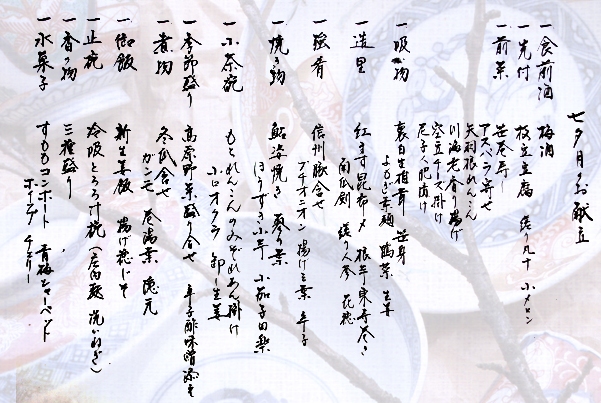 七夕月のお献立
一 食前酒 梅酒
一 先付 枝豆豆腐 造り丸十 小メロン
一 前菜 笹巻寿し
アスパラ寄せ
矢羽根れんこん
川海老合り揚げ
空豆チーズ掛け
一 吸物 裏白生椎茸 笹身
よもぎ素麺 鶴菜 生姜
一 造里 紅ます昆布〆 根芋東寺巻き
南瓜剣 縒り人参 花穂
一 強肴 信州豚合せ
プチオニオン 揚げ玉葉 辛子
一 焼き物 鮎姿焼き 蓼の葉
ほうずき小芋 小茄子田楽
一 小茶碗 もとれんこんのみぞれあん掛け
小口オクラ 卸し生姜
一 季節盛り 高原野菜盛り合せ 辛子酢味噌添え
一 煮物 冬瓜含せ
ガンモ 巻湯葉 隠元
一 御飯 新生姜飯 揚げ稔じそ
一 止椀 冷汲とろろ汁椀
一 香の物 三種盛り
一 水菓子 すももコンポート 青梅シャーベット
ボイルドチェリー